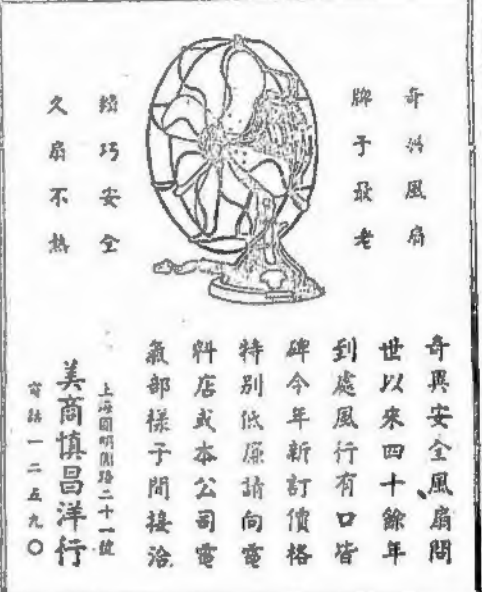 奇異風扇
牌子最老
精巧安全
久扇不熱
奇異安全風扇問
世以來四十餘年
到處風行有口皆
碑今年新訂價格
特別低廉請向電
料店或本公司電
氣部樣子間接洽
上海圓明園路二十一號
美商慎昌洋行
電話一二五九〇